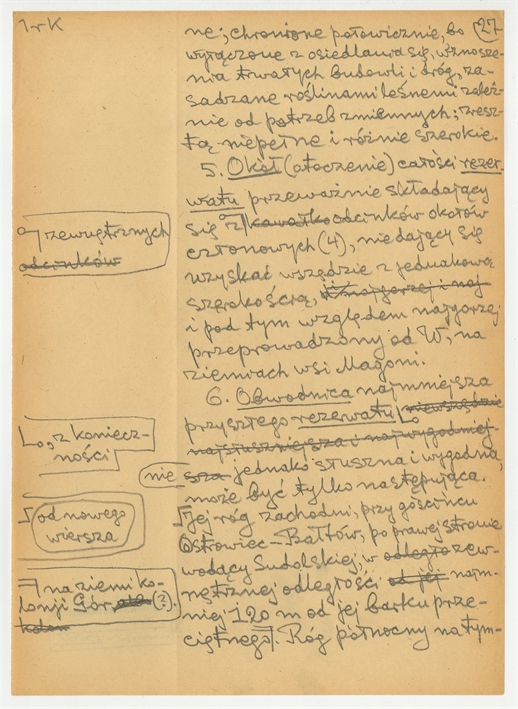 1rK
27
ne; chronione połowicznie, bo
wyłączone z osiedlania się, wznosze-
nia trwałych budowli i dróg, za-
sadzane roślinami leśnemi zależ-
nie od potrzeb zmiennych; zresz-
tą niepełne i różnie szerokie.
5. Okół (otoczenie) całości rezer-
watu przeważnie składający
się z kawałko odcinków okołów
członowych (4), nie dający się
wzyskać wszędzie z jednakową
szerokością, i najgorzej i naj
i pod tym względem najgorzej
przeprowadzony od W, na
ziemiach wsi Magoni.
6. Obwodnica najmniejsza
przyszłego rezerwatu, niewszędzie
najsłuszniejsza i najwygodniej-
nie sza jednako słuszna i wygodna,
może być tylko następująca.
Jej róg zachodni, przy gościńcu
Ostrowiec–Bałtów, po prawej stronie
wodący Sudolskiej, w odległo zew-
nętrznej odległości od jej najm-
niej 120 m od jej barku prze-
ciętnego. Róg północny na tym-
zewnętrznych
odcinków
o, z koniecz-
ności
od nowego
wiersza
na ziemi ko-
lonji Gór (?).